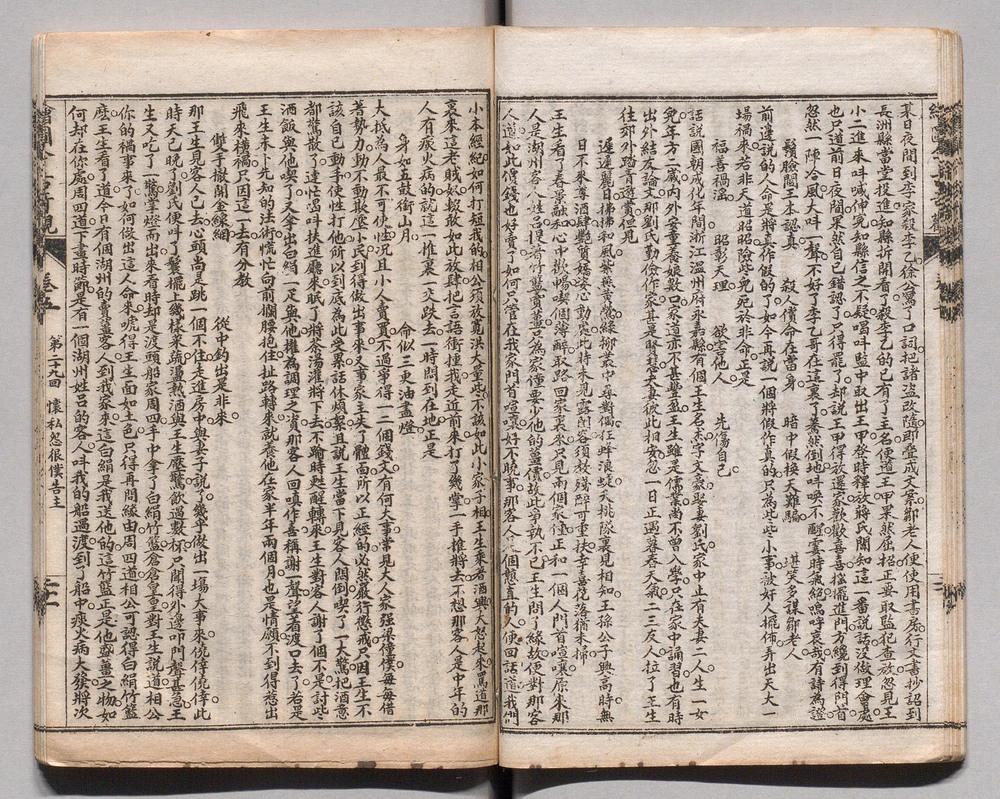 某日夜間到李家殺李乙徐公寫了口詞把諸盜改隨即疊成文案鄒老人便使用書房行文書抄招到
長洲縣當堂投進知縣拆開看了殺李乙的已有了主名便道王甲果然屈招正要取監犯查放忽見王
小二進來叫喊伸寃知縣信之不疑喝叫監中取出王甲登時釋放蔣氏聞知這一番說話沒做理會處
也只道前日夜間果然自己錯認了只得罷了却說王甲得放還家歡歡喜喜搖擺進門方纔到得門首
忽然一陣冷風大叫一聲不好了李乙哥在這裏了驀然倒地叫喚不醒霎時氣絕嗚呼哀哉有詩為證
鬍臉閻王本認真　殺人償命在當身　暗中假換天難騙　堪笑多謀鄒老人
前邊說的人命是將真作假的了如今再說一個將假作真的只為些些小事被好人擺佈弄出天大一
場禍來若非人道昭昭險些兒死於非命正是
福善禍淫　昭彰天理　欲害他人　先傷自己
話說國朝成化年間浙江溫州府永嘉縣有個王生名杰字文豪娶妻劉氏家中止有夫妻二人生一女
兒年方二歲內外安童養娘數口家道亦不甚豐盈王生雖是儒業尚不曾入學只在家中誦習也有時
出外結友論文那劉氏勤儉作家甚是賢慧夫妻彼此相安忽一日正遇暮春天氣二三友人拉了王生
往郊外踏青遊賞但見
遲遲麗日拂拂和風紫燕黃鶯綠柳叢中尋對偶狂蜂浪蝶夭桃隊裏覓相知王孫公子興高時無
日不來尋酒肆艷質嬌姿心動處此時未免露閨容須教殘醉可重扶幸喜落花猶未掃
王生看了春景融和心中歡暢喫個薄醉取路回家裏來只見兩個家僮正和一個人門首喧嚷原來那
人是湖州客人姓呂提着竹籃賣薑只為家僮要少他的薑價故此爭執不已王生問了緣故便對那客
人道如此價錢也好賣了如何只管在我家門首喧嚷好不曉事那客人是個憨直的人便回話道我們
小本經紀如何打短我的相公須放寬洪大量些不該如此小家子相王生乘着酒興大怒起來罵道那
裏來這老賊奴輒敢如此放肆把言語衝撞我走近前來打了幾拳一手推將去不想那客人是中年的
人有痰火病的就這一推裏一交跌去一時悶到在地正是
身如五鼓銜山月　命似三更油盡燈
大抵為人最不可使性況且小人賣買不過爭得一二個錢文有何大事常見大人家強梁僮僕每每借
着勢力動不動欺壓小民到得做出事來又事家主失了體面所以正經的必然嚴行懲戒只因王生不
該自己動手使性打他所以到底為此受累話休煩絮且說王生當下見客人悶倒喫了一大驚把酒意
都驚散了連忙喝叫扶進廳來眠了將茶湯灌將下去不踰時甦醒轉來王生對客人謝了個不是討些
酒飯與他喫了又拿出白絹一疋與他權為調理之資那客人回嗔作喜稱謝一聲望着渡口去了若是
王生未卜先知的法術慌忙向前攔腰抱住扯路轉來就養他在家半年兩個月也是情願不到得惹出
飛來橫禍只因這一去有分教
雙手撒開金線網　從中釣出是非來
那王生見客人已去心頭尚是跳一個不住走進房中與妻子說了幾乎做出一場大事來僥倖僥倖此
時天已晚了劉氏便叫了鬟擺上幾樣菜蔬湯熱酒與王生壓驚飲過數杯只聞得外邊叩門聲甚急王
生又吃了一驚掌燈而出來看時却是渡頭船家周四手中拿了白絹竹籃倉倉皇皇對王生說道相公
你的禍事來了如何做出這人命來唬得王生面如土色只得再問緣由周四道相公可認得白絹竹籃
麼王生看了道今日有個湖州的賣薑客人到我家來這白絹是我送他的這竹籃正是他盛薑之物如
何却在你處周四道下晝時節是有一個湖州姓呂的客人叫我的船過渡到了船中痰火病大發將次
第二十九回　懷私怨狠僕告主